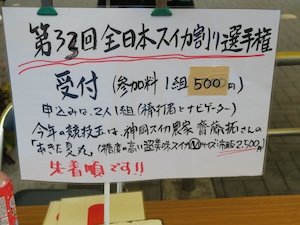 第33回全日本スイカ割り選手権
受付(参加料1組500円)
申込みは、2人1組(棒打者とナビゲーター)
今年の競技玉は、神岡スイカ農家 齊藤拓さんの
「あきた夏丸」(糖度の高い超美味スイカMサイズ:市販2,500円)
先着順です!!